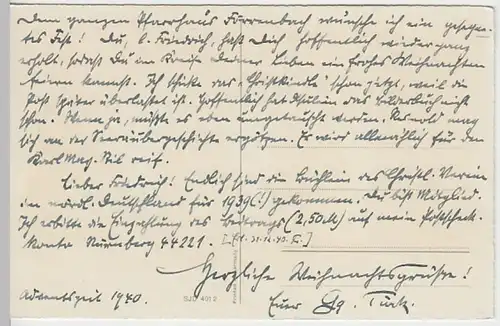 Dem ganzen Pfarrhaus Förrenbach wünsche ich ein gesegne-
tes Fest! Du, l. Friedrich, hast Dich hoffentlich wieder ganz
erholt, sodaß Du im Kreise Deiner Lieben ein frohes Weihnachten
feiern kannst. Ich schicke das "Christkindle" schon jetzt, weil die
Post später überlastet ist. Hoffentlich hat das Bilderbuch nicht
schon. Wenn ja, müßte es eben umgetauscht werden. Arnold mag
sich an der Seeräubergeschichte ergötzen. Er wird allmählich für den
Karl May-Stil reif.
Lieber Friedrich! Endlich sind die Büchlein des Christl. Verein
im nördl. Deutschland für 1939 (!) gekommen. Du bist Mitglied.
Ich erbitte die Einzahlung des Beitrags (2,50 M) auf mein Postscheck-
konto Nürnberg 44221.
Herzliche Weihnachtsgrüße!
Adventszeit 1940.
Euer Gg. Türk.